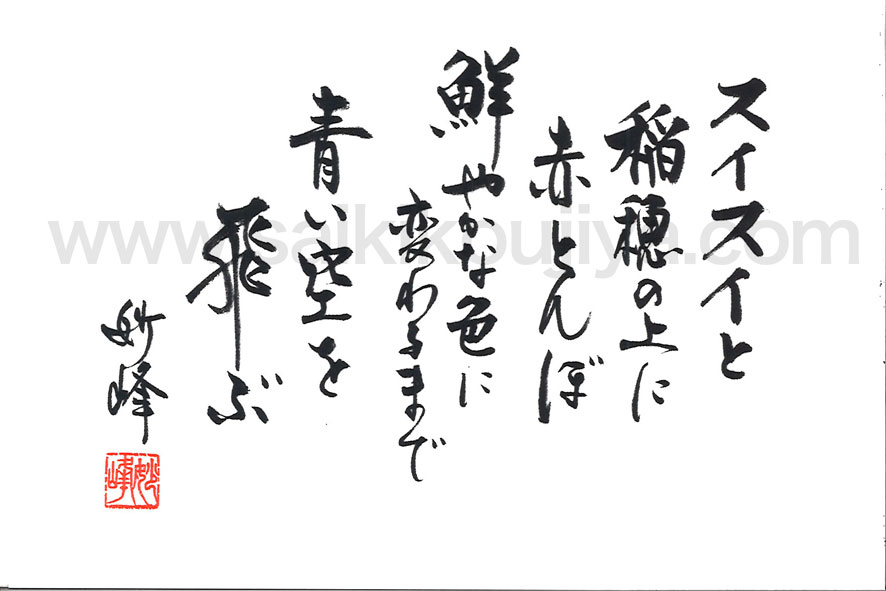 スイスイと
稲穂の上に
赤とんぼ
鮮やかな色に
変わるまで
青い空を
飛ぶ
妙峰
妙峰
www.saikikoujiya.com